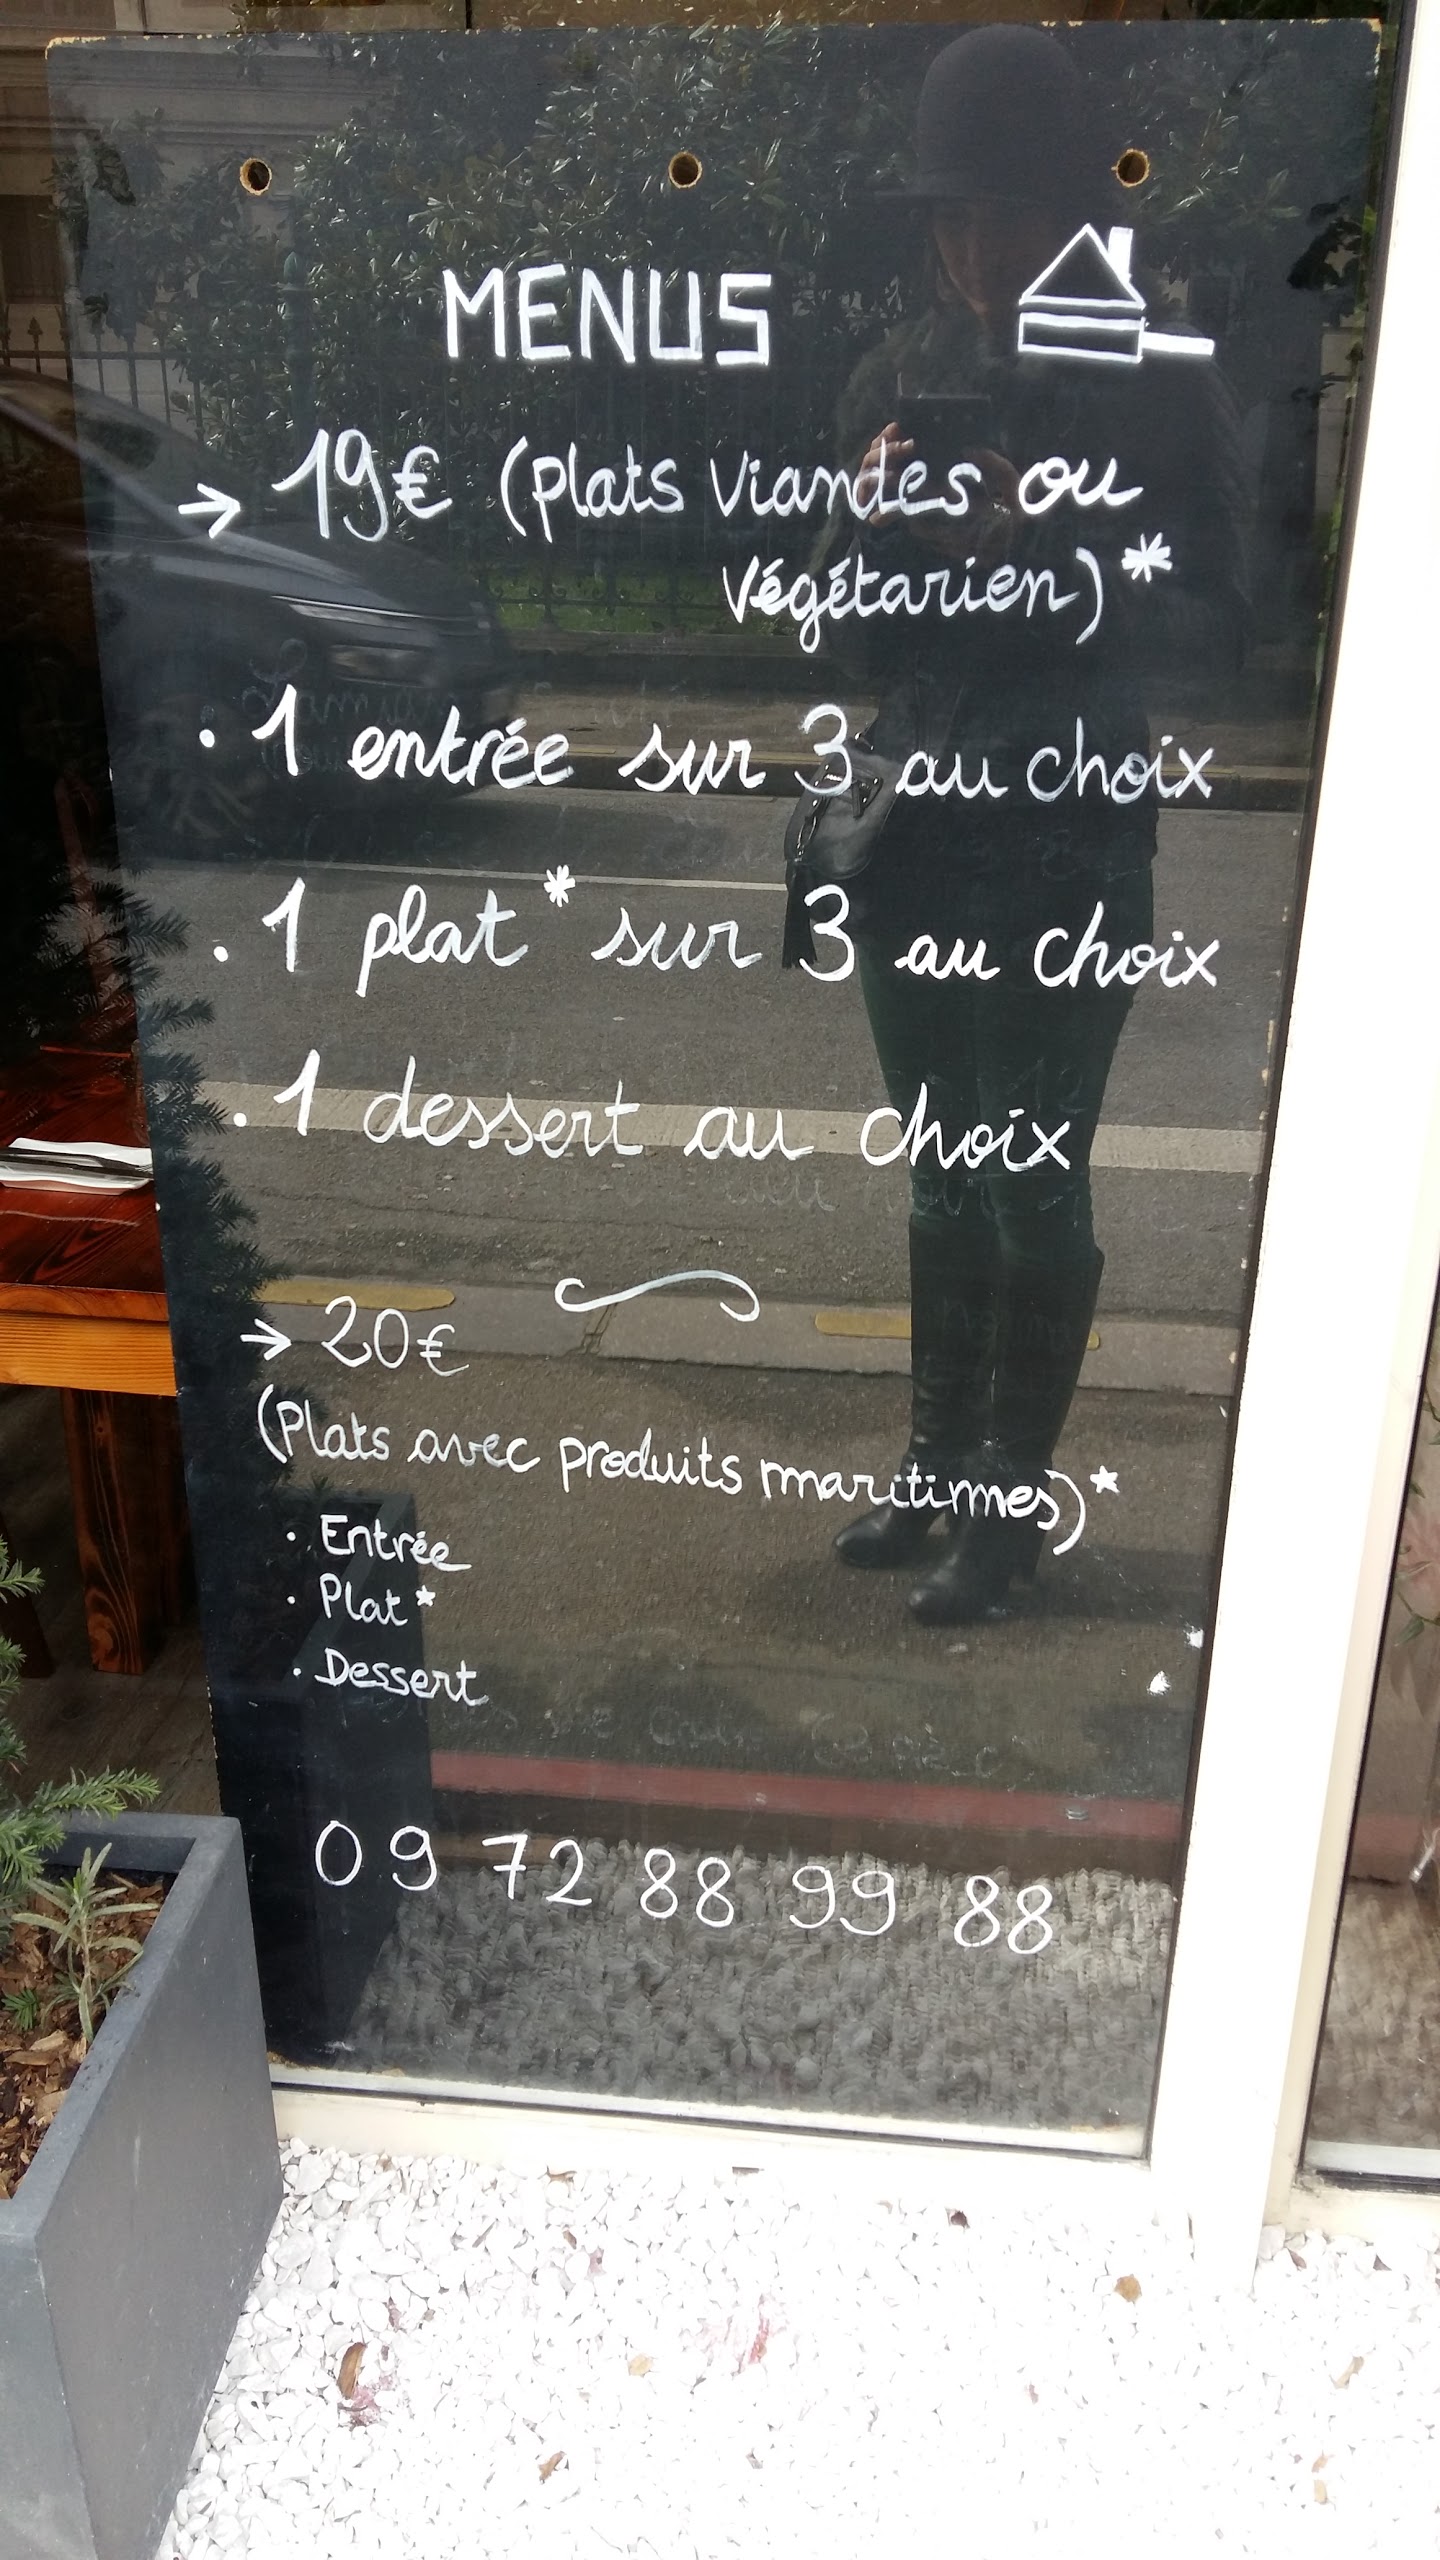 MENUS
→ 19€ (plats viandes ou
végétarien)*
. 1 entrée sur 3 au choix
. 1 plat* sur 3 au choix
. 1 dessert au choix
→ 20€
(Plats avec produits maritimes)*
. Entrée
. Plat*
. Dessert
09 72 88 99 88